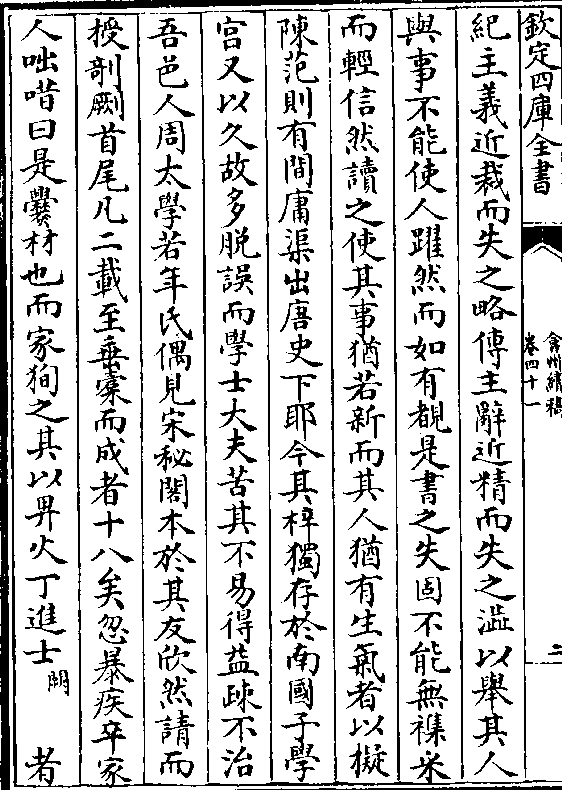 欽定四庫全書
弇州續稿
卷四十一
二
紀主義近裁而失之略傳主辭近精而失之溢以舉其人
與事不能使人躍然而如有覩是書之失固不能無襍采
而輕信然讀之使其事猶若新而其人猶有生氣者以擬
陳范則有間庸渠出唐史下耶今其梓獨存於南國子學
宫又以久故多脱誤而學士大夫苦其不易得益疎不治
吾邑人周太學若年氏偶見宋秘閣本於其友欣然請而
授剞劂首尾凡二載至垂橐而成者十八矣忽暴疾卒家
人咄唶曰是爨材也而家狥之其以畀火丁進士 闕 者